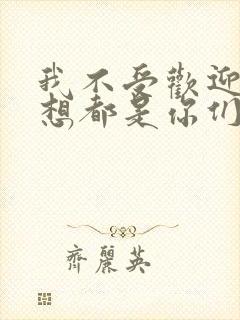 我不受歡迎
想都是你們
齊麗英